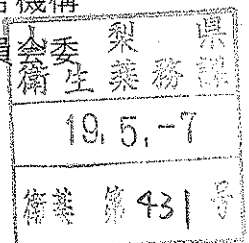 機構
員会委
山梨県
衛生薬務課
19.5.-7
衛薬第431号